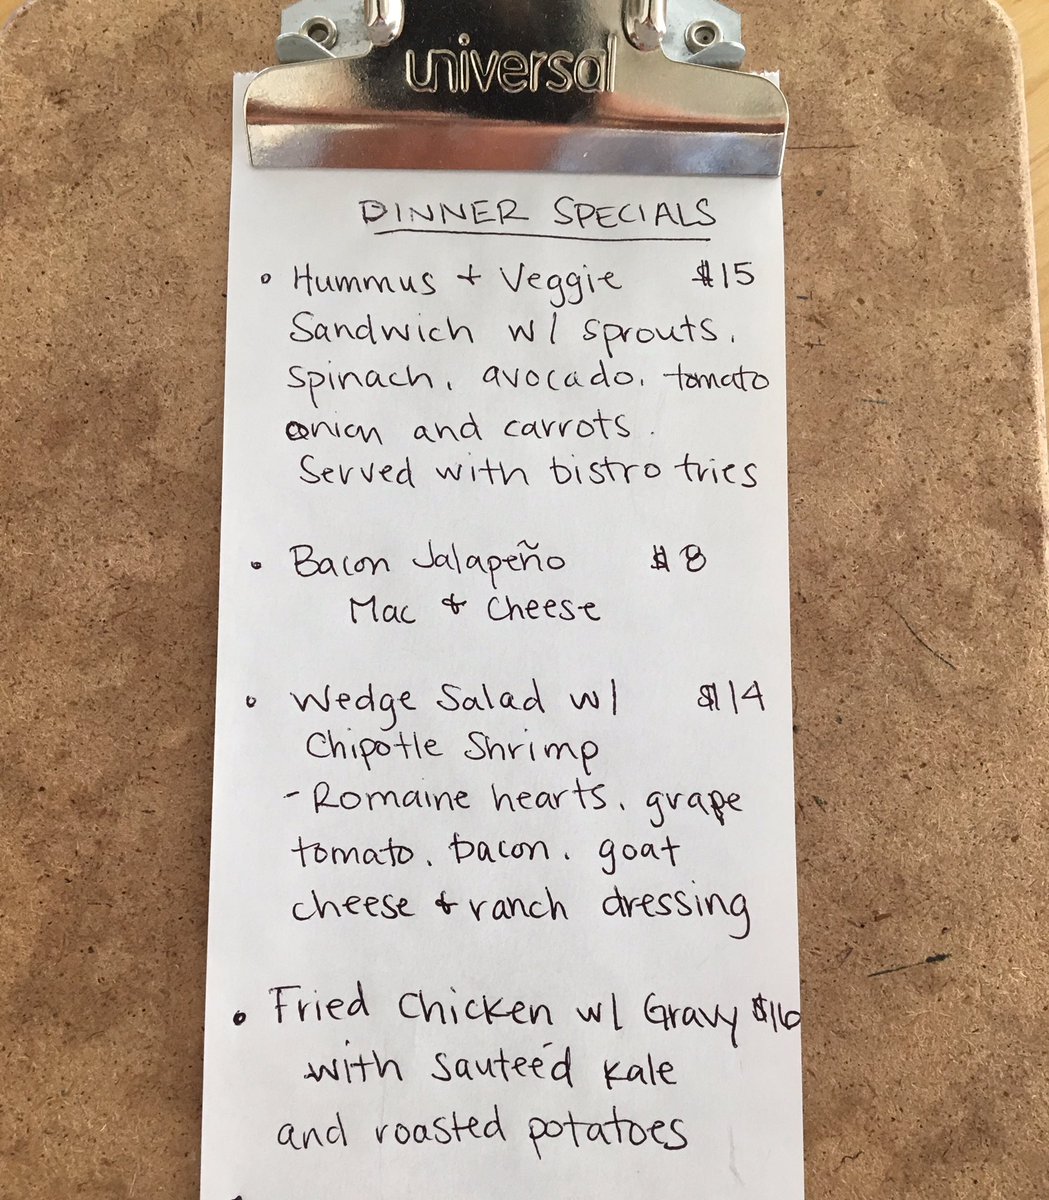 universal
DINNER SPECIALS
• Hummus + Veggie $15
Sandwich w/ sprouts,
spinach, avocado, tomato
onion and carrots.
Served with bistro fries
• Bacon Jalapeño $8
Mac + Cheese
• Wedge Salad w/ $14
Chipotle Shrimp
- Romaine hearts, grape
tomato, bacon, goat
cheese + ranch dressing
• Fried Chicken w/ Gravy $16
with Sauteéd Kale
and roasted potatoes